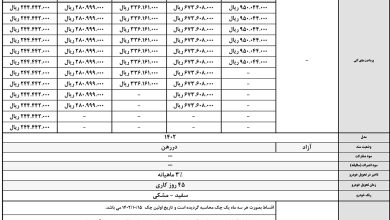 ۹۵۰.۰۴۴.۰۰۰ ریال ۶۷۳.۶۰۸.۰۰۰ ریال ۳۳۶.۱۶۱.۰۰۰ ریال ۲۸۰.۹۹۹.۰۰۰ ریال ۲۴۴.۴۴۳.۰۰۰ ریال
۹۵۰.۰۴۴.۰۰۰ ریال ۶۷۳.۶۰۸.۰۰۰ ریال ۳۳۶.۱۶۱.۰۰۰ ریال ۲۸۰.۹۹۹.۰۰۰ ریال ۲۴۴.۴۴۳.۰۰۰ ریال
۹۵۰.۰۴۴.۰۰۰ ریال ۶۷۳.۶۰۸.۰۰۰ ریال ۳۳۶.۱۶۱.۰۰۰ ریال ۲۸۰.۹۹۹.۰۰۰ ریال ۲۴۴.۴۴۳.۰۰۰ ریال
۹۵۰.۰۴۴.۰۰۰ ریال ۶۷۳.۶۰۸.۰۰۰ ریال ۳۳۶.۱۶۱.۰۰۰ ریال ۲۸۰.۹۹۹.۰۰۰ ریال ۲۴۴.۴۴۳.۰۰۰ ریال
پرداخت های آتی – ۹۵۰.۰۴۴.۰۰۰ ریال ۶۷۳.۶۰۸.۰۰۰ ریال ۳۳۶.۱۶۱.۰۰۰ ریال ۲۸۰.۹۹۹.۰۰۰ ریال ۲۴۴.۴۴۳.۰۰۰ ریال
– ۶۷۳.۶۰۸.۰۰۰ ریال ۳۳۶.۱۶۱.۰۰۰ ریال ۲۸۰.۹۹۹.۰۰۰ ریال ۲۴۴.۴۴۳.۰۰۰ ریال
– ۶۷۳.۶۰۸.۰۰۰ ریال ۳۳۶.۱۶۱.۰۰۰ ریال ۲۸۰.۹۹۹.۰۰۰ ریال ۲۴۴.۴۴۳.۰۰۰ ریال
– ۶۷۳.۶۰۸.۰۰۰ ریال ۳۳۶.۱۶۱.۰۰۰ ریال ۲۸۰.۹۹۹.۰۰۰ ریال ۲۴۴.۴۴۳.۰۰۰ ریال
– – – ۲۸۰.۹۹۹.۰۰۰ ریال ۲۴۴.۴۴۳.۰۰۰ ریال
– – – – ۲۴۴.۴۴۳.۰۰۰ ریال
– – – – ۲۴۴.۴۴۳.۰۰۰ ریال
– – – – ۲۴۴.۴۴۳.۰۰۰ ریال
مدل ۱۴۰۲
وضعیت سند آزاد دررهن
سود مشارکت ---
سود انصراف (ماهیانه) ---
تاخیر در تحویل خودرو ۳٪ ماهیانه
زمان تحویل خودرو ۴۵ روز کاری
رنگ خودرو سفید – مشکی
اقساط بصورت هر سه ماه یک چک محاسبه گردیده است و تاریخ اولین چک ۱۴۰۲/۱۰/۱۵ می باشد.